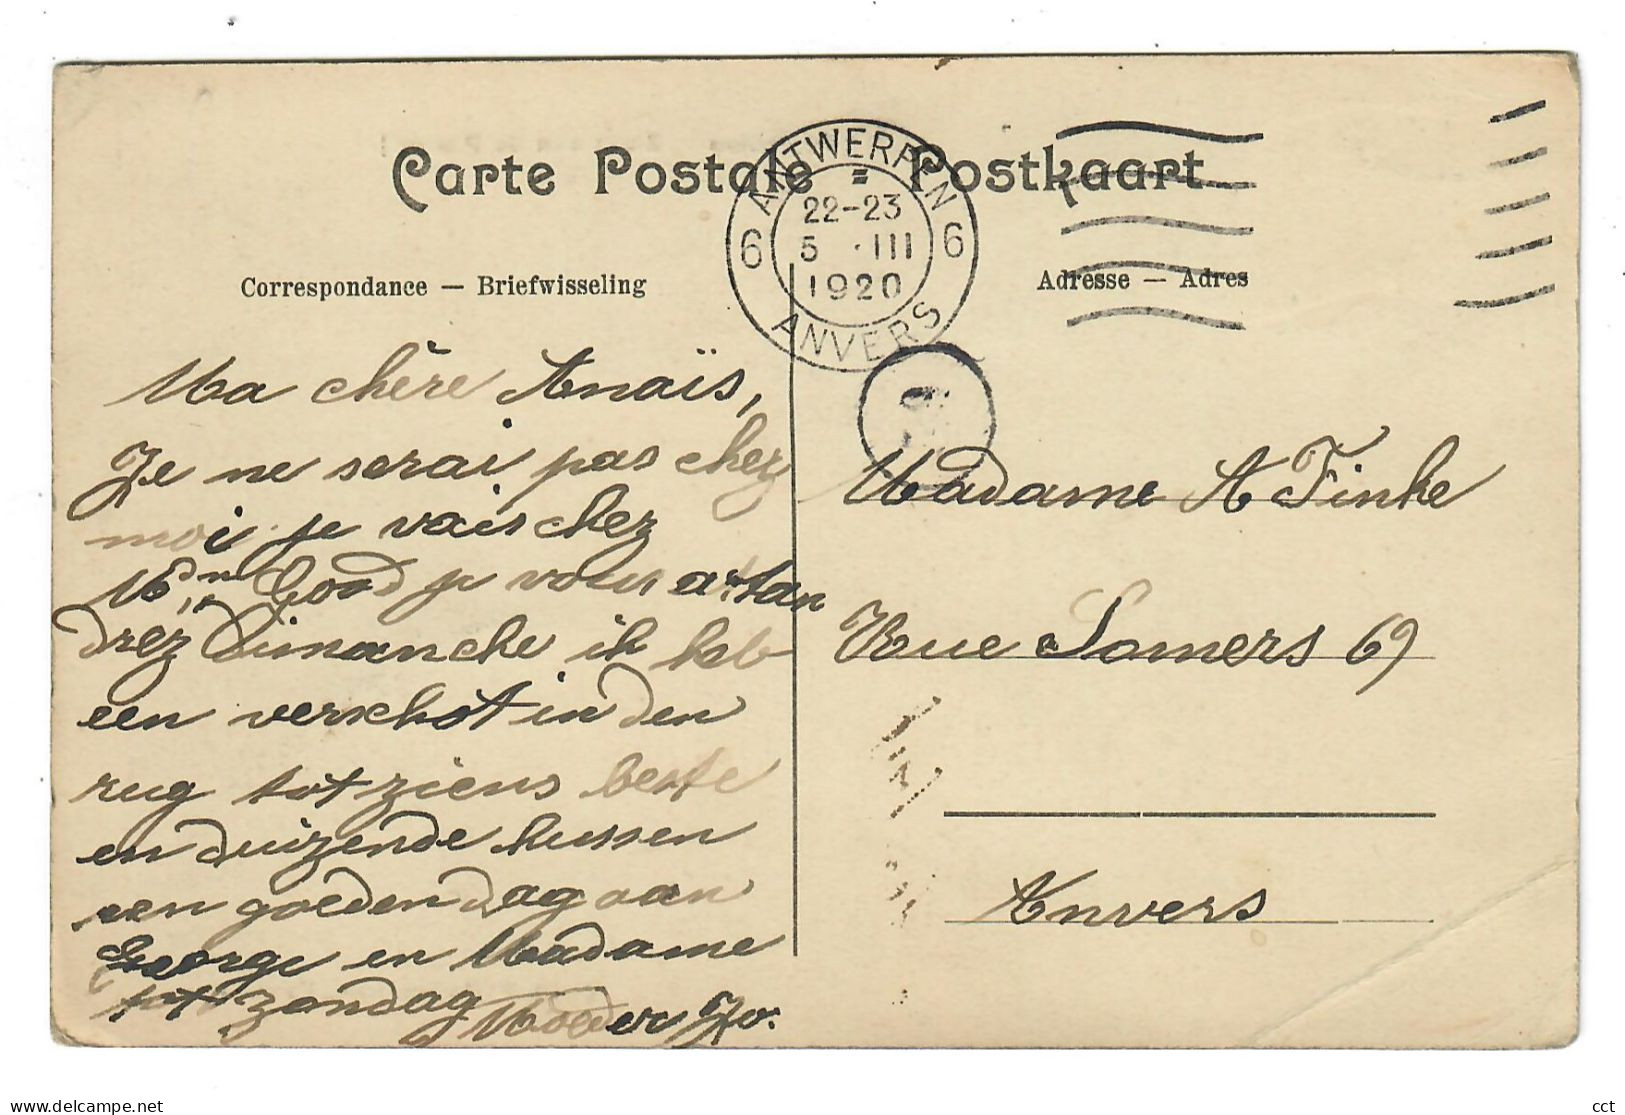 Carte Postale Postkaart
ANTWERPEN
6 22-23 6
5 ·III
1920
ANVERS
Correspondance — Briefwisseling
Adresse — Adres
Ma chère Anaïs,
Je ne serai pas chez
moi je vais chez
Mdm Good je vous attan
drez Dimanche ik heb
een verschot in den
rug tot ziens beste
en duizende kussen
een goeden dag aan
George en Madame
tot zondag Moeder Jo.
Madame A Finke
Rue Somers 69
Anvers
delcampe.net
cct